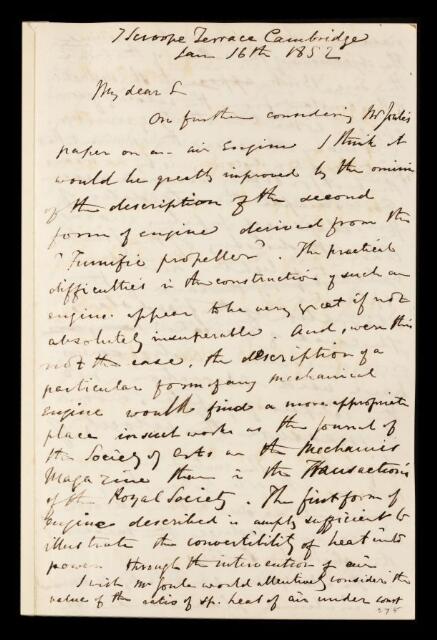 7 Scroope Terrace Cambridge
Jan 16th 1852
My dear Sr
On further considering Mr Joule's
paper on an air Engine I think it
would be greatly improved by the omission
of the description of the second
form of engine derived from the
"Fumific propeller". The practical
difficulties in the construction of such an
engine appear to be very great if not
absolutely insuperable. And, were this
not the case, the description of a
particular form of any mechanical
engine would find a more appropriate
place in such works as the Journal of
the Society of Arts or the Mechanics
Magazine than in the Transactions
of the Royal Society. The first form of
Engine described is amply sufficient to
illustrate the convertibility of heat into
power through the intervention of air
I wish Mr Joule would attentively consider the
value of the ratio of sp. heat of air under const
275